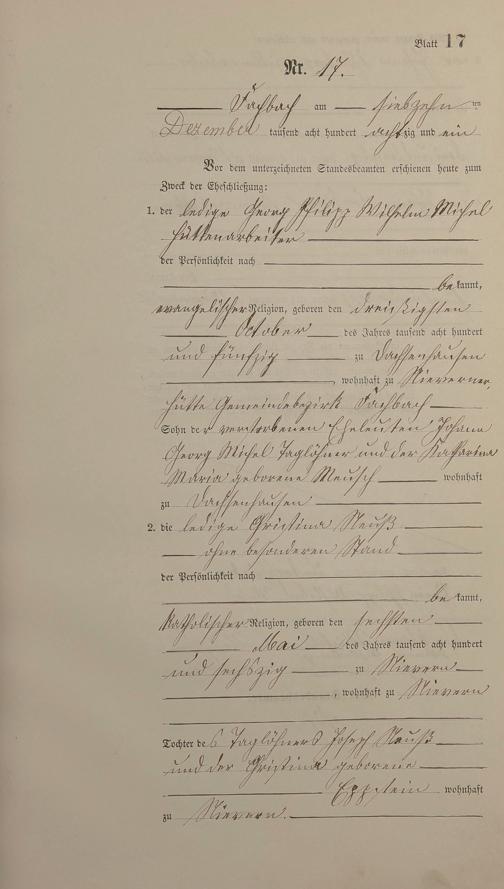 Blatt 17
Nr. 17.
Fachbach am siebzehn ten
Dezember tausend acht hundert achtzig und ein
Vor dem unterzeichneten Standesbeamten erschienen heute zum
Zweck der Eheschließung:
1. der ledige Georg Philipp Wilhelm Michel
Hüttenarbeiter
der Persönlichkeit nach
bekannt,
evangelischer Religion, geboren den dreißigsten
October des Jahres tausend acht hundert
und fünfzig zu Dachsenhausen
, wohnhaft zu Nieverner,
hütte Gemeindebezirk Fachbach
Sohn der verstorbenen Eheleuten Johann
Georg Michel Taglöhner und der Katharina
Maria geborene Meusch wohnhaft
zu Dachsenhausen
2. die ledige Christina Neuß
ohne besonderen Stand
der Persönlichkeit nach
bekannt,
katholischer Religion, geboren den sechsten
Mai des Jahres tausend acht hundert
und sechszig zu Nievern
, wohnhaft zu Nievern
Tochter des Taglöhners Joseph Neuß
und der Christina geborene
Eppstein wohnhaft
zu Nievern.